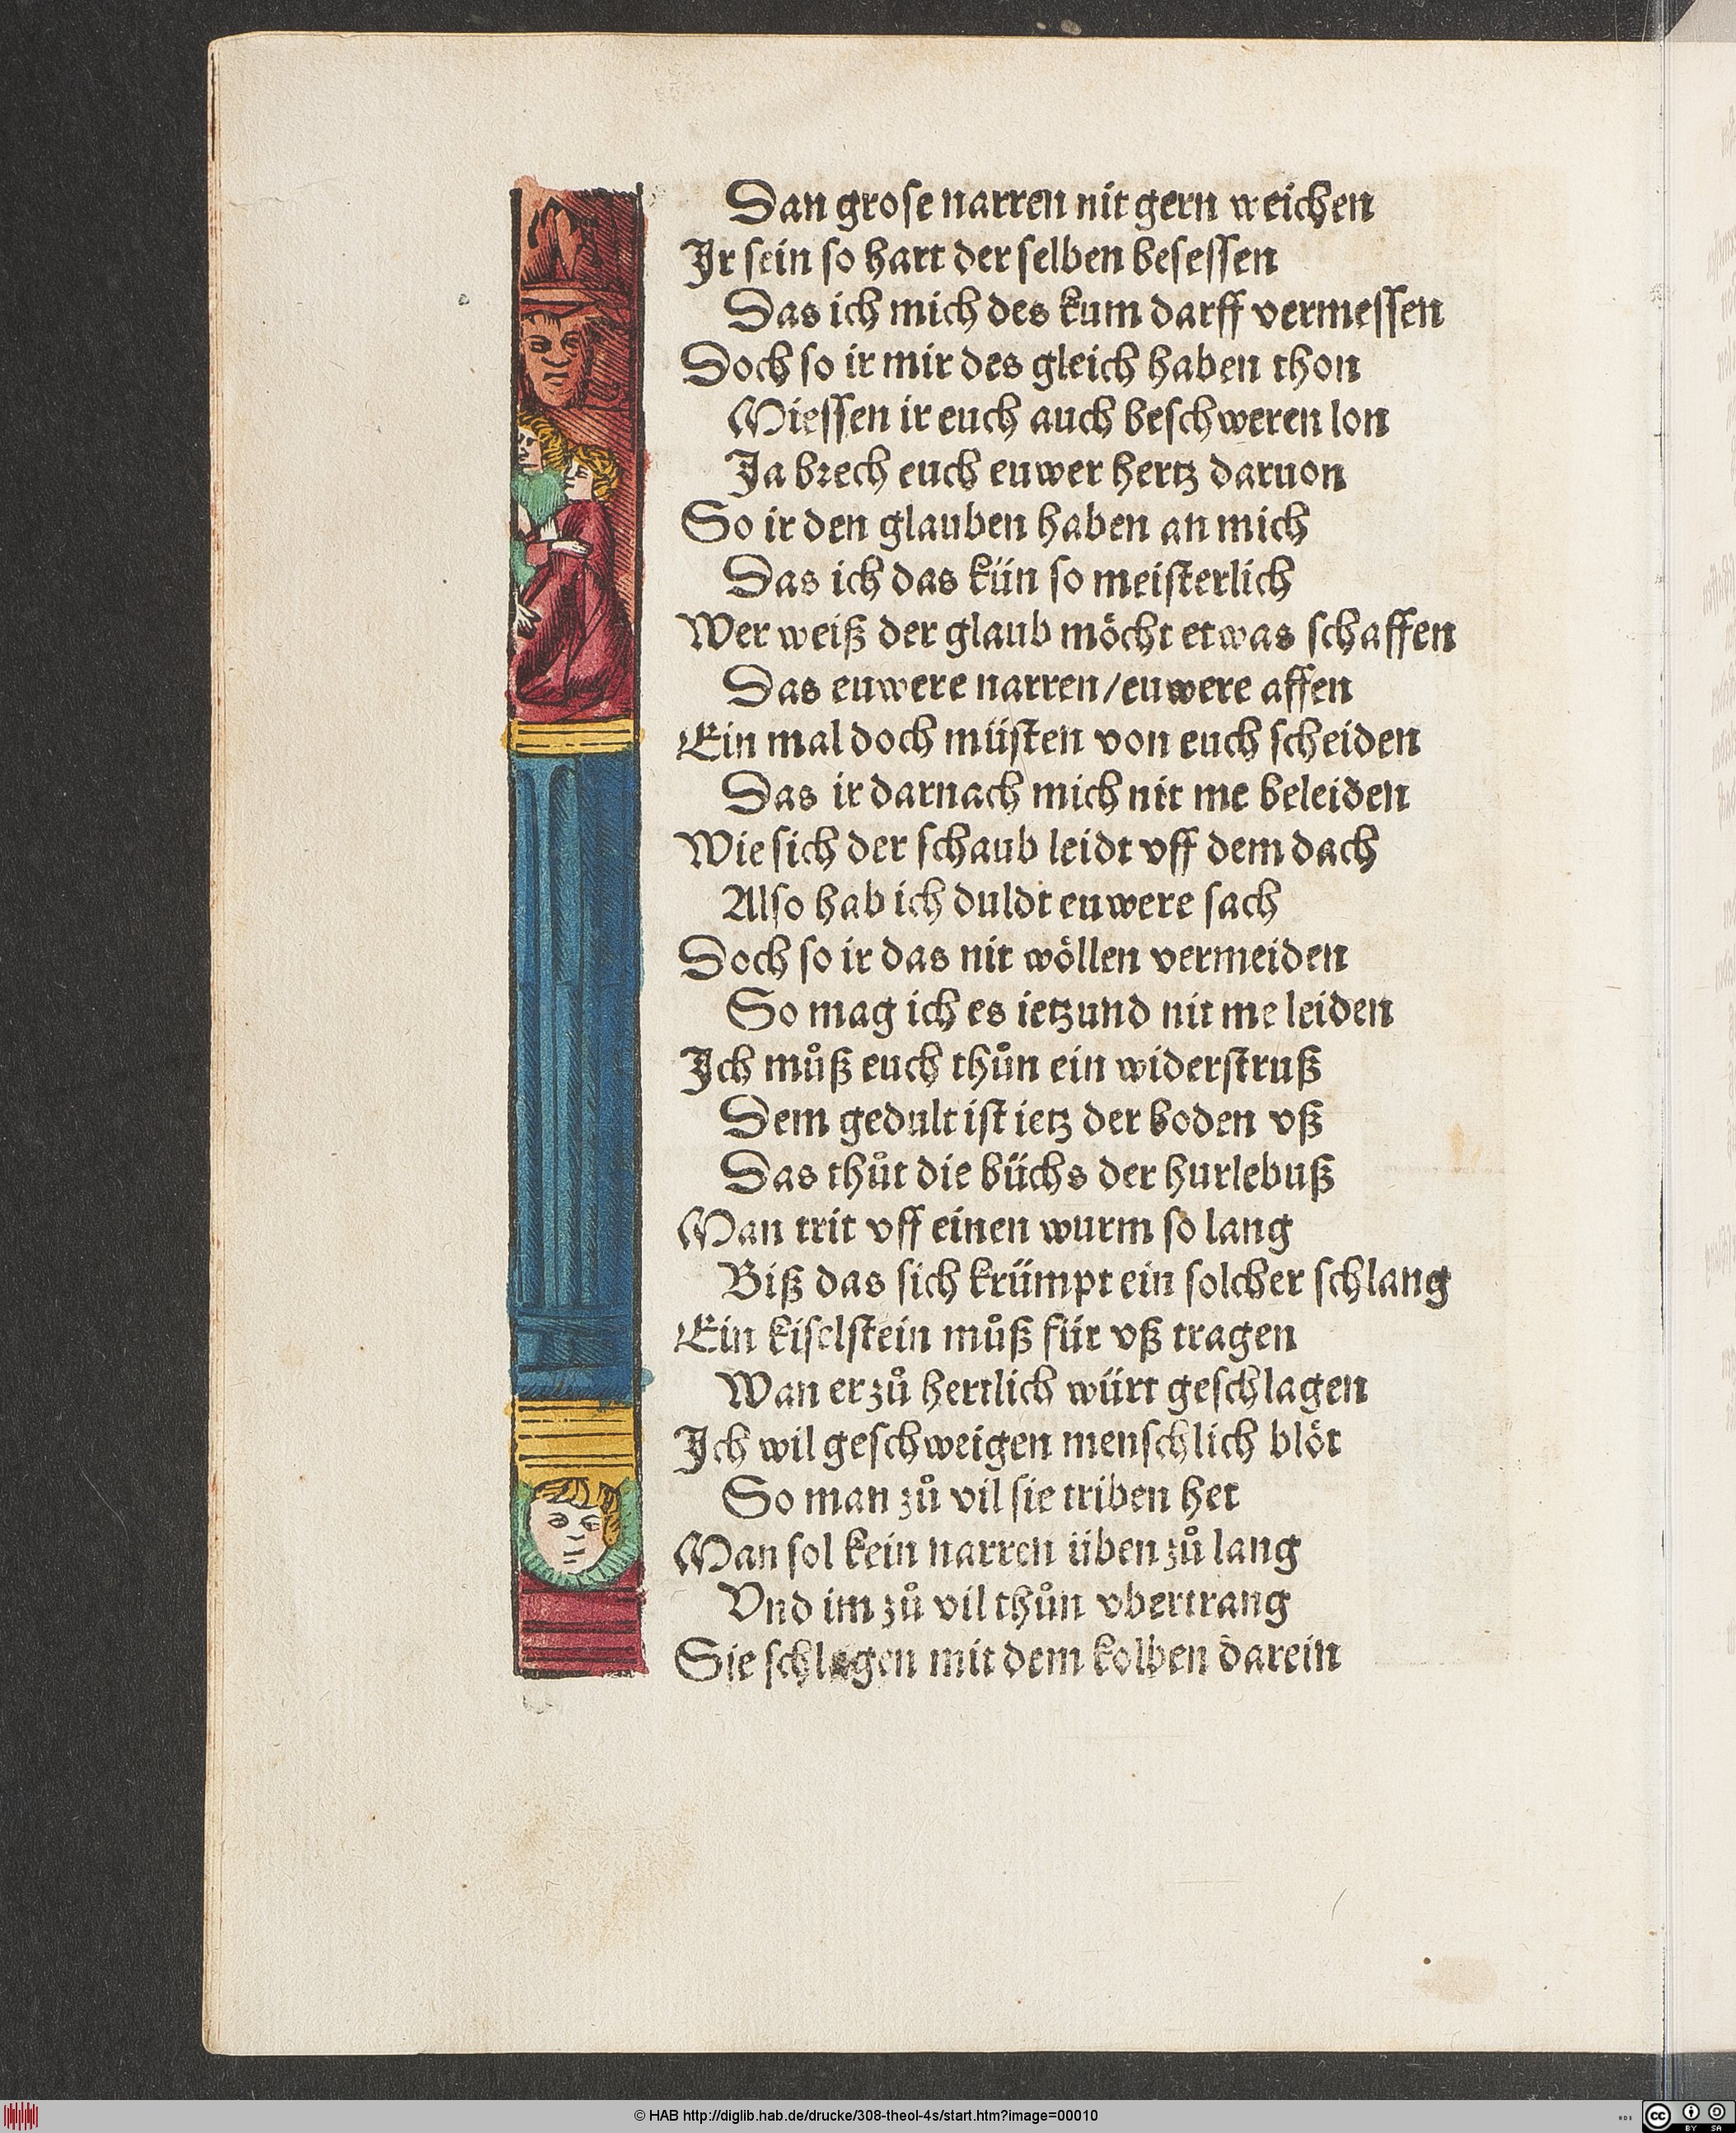 Dan grose narren nit gern weichen
Jr sein so hart der selben besessen
Das ich mich des kum darff vermessen
Doch so ir mir des gleich haben thon
Miessen ir euch auch beschweren lon
Ja brech euch euwer hertz daruon
So ir den glauben haben an mich
Das ich das kün so meisterlich
Wer weiß der glaub möcht etwas schaffen
Das euwere narren/euwere affen
Ein mal doch müsten von euch scheiden
Das ir darnach mich nit me beleiden
Wie sich der schaub leidt vff dem dach
Also hab ich duldt euwere sach
Doch so ir das nit wöllen vermeiden
So mag ich es ietzund nit me leiden
Ich můß euch thůn ein widerstruß
Dem gedult ist ietz der boden vß
Das thůt die büchs der hurlebuß
Man trit vff einen wurm so lang
Biß das sich krümpt ein solcher schlang
Ein kiselstein můß für vß tragen
Wan er zů hertlich würt geschlagen
Ich wil geschweigen menschlich blöt
So man zů vil sie triben het
Man sol kein narren üben zů lang
Vnd im zů vil thůn vbertrang
Sie schlagen mit dem kolben darein
© HAB http://diglib.hab.de/drucke/308-theol-4s/start.htm?image=00010
cc BY SA